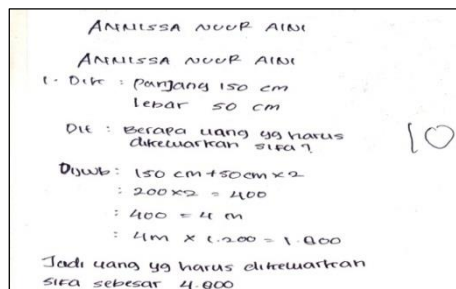 ANNISSA NUUR AINI
ANNISSA NUUR AINI
1. Dik : Panjang 150 cm
Lebar 50 cm
Dit : Berapa uang yg harus
dikeluarkan sifa?
10
Dijwb : 150 cm + 50 cm x 2
: 200 x 2 = 400
: 400 = 4 m
: 4m x 1.200 = 1.800
Jadi uang yg harus dikeluarkan
sifa sebesar 4.800